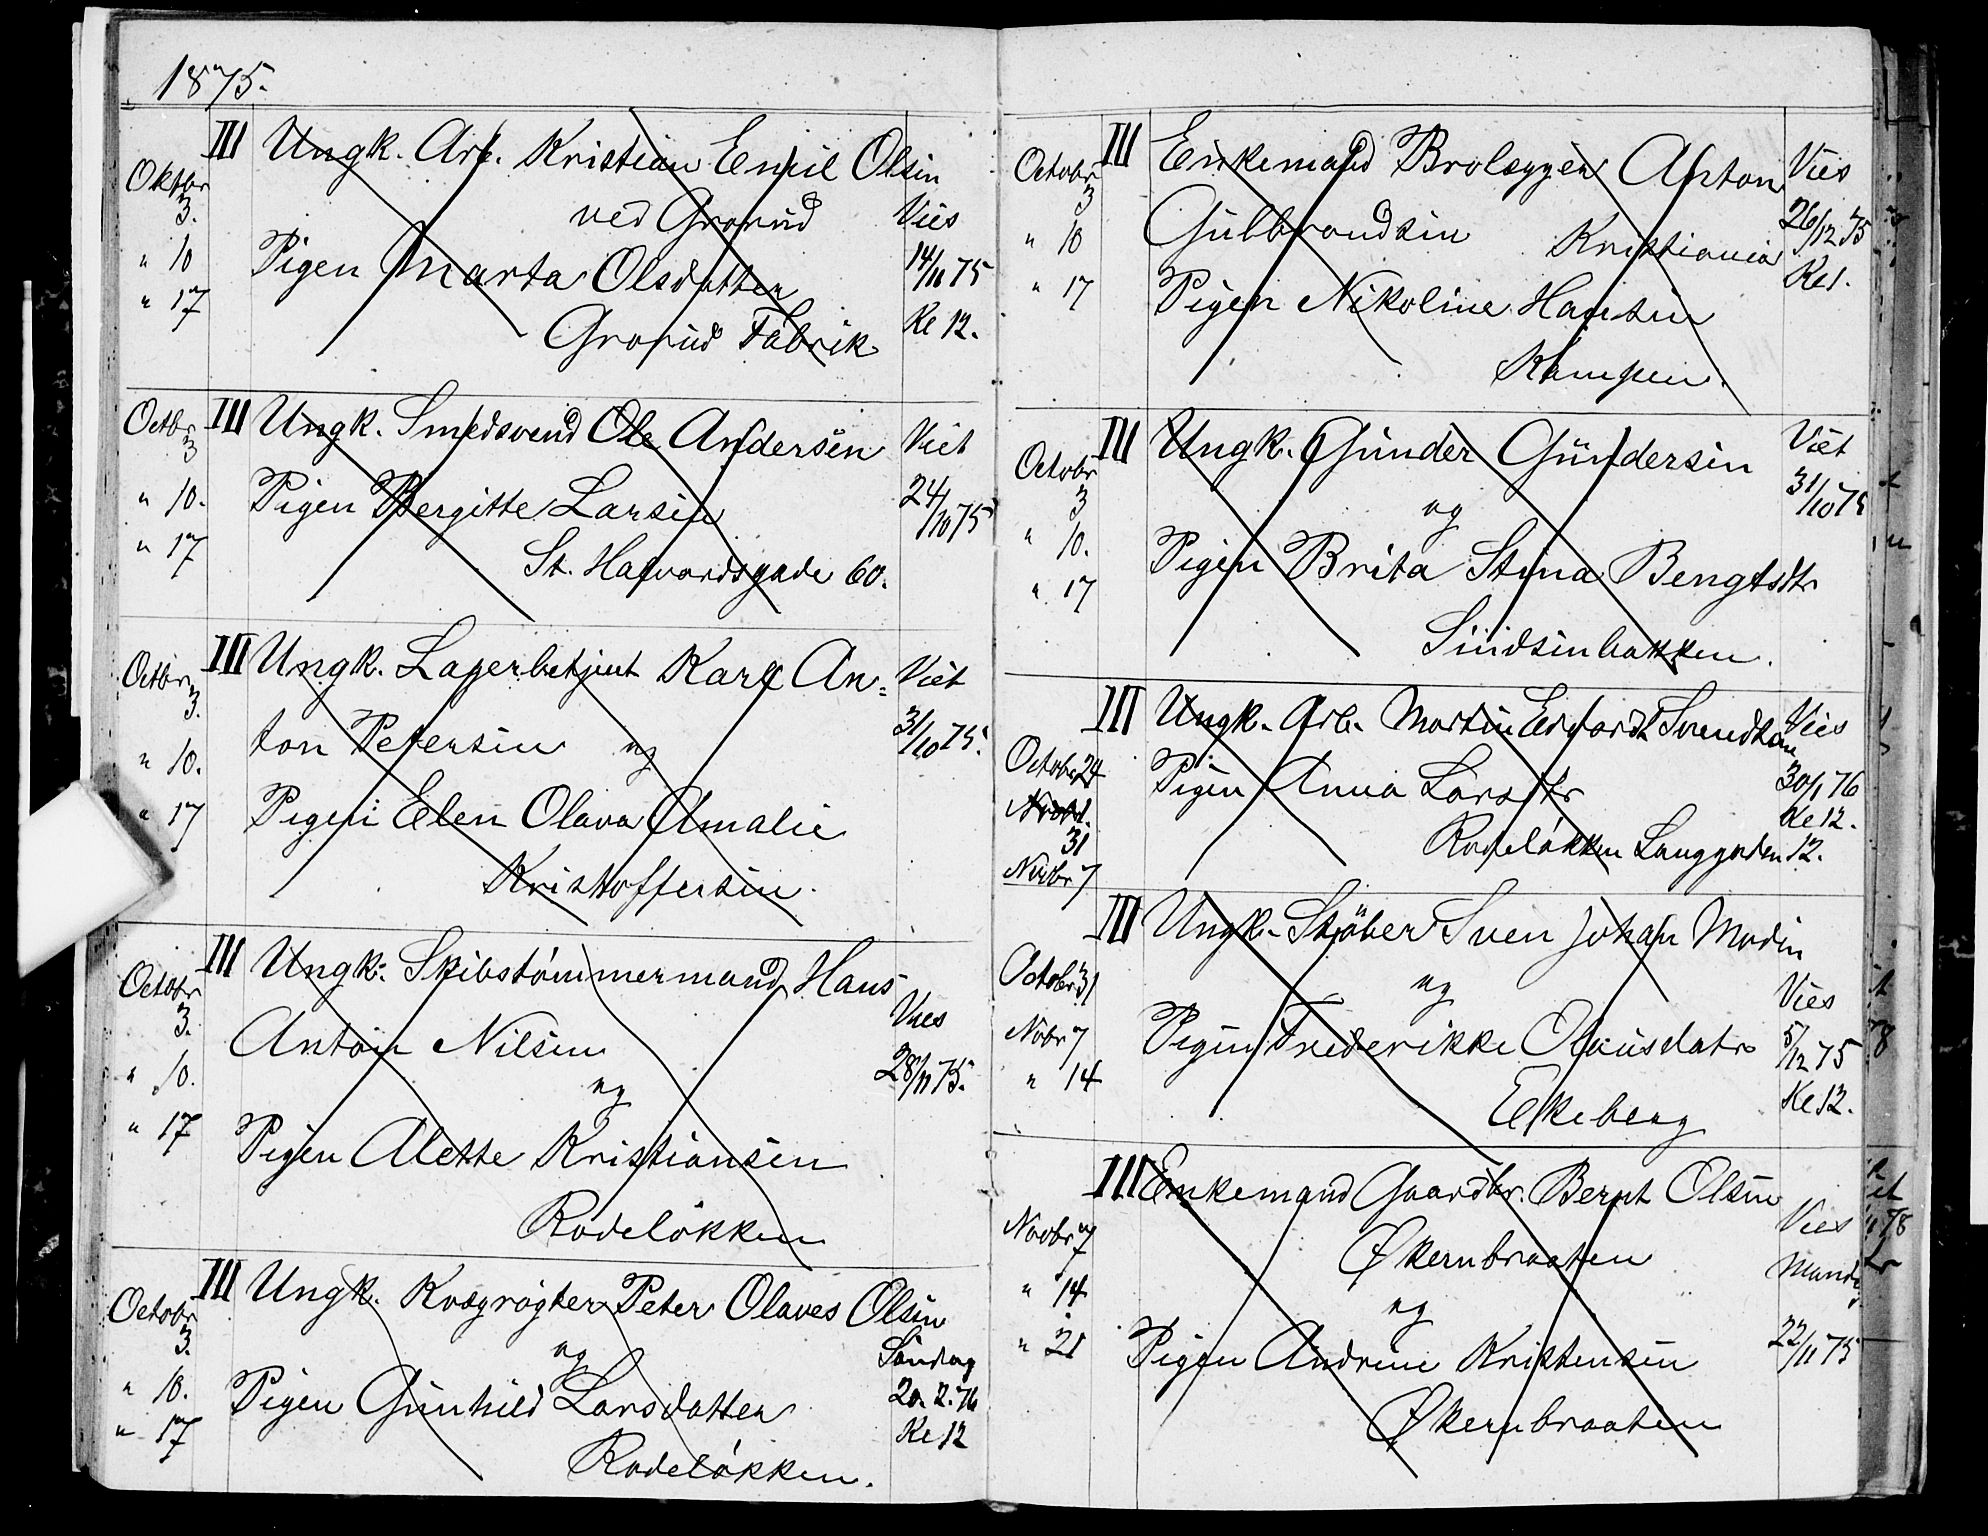 1875.
III Ungk. Arb. Kristian Emil Olsen
Oktbr
3.
ved Grorud
Vies
" 10
Pigen Marta Olsdatter
14/11 75
" 17
Grorud Fabrik
Kl 12.
Octbr
3
III Ungk. Smedsvend Ole Andersen
Viet
" 10.
Pigen Bergitte Larsen
24/10 75
" 17
St. Halvardsgade 60.
Octbr
3.
III Ungk. Lagerbetjent Karl An=
Viet
ton Petersen og
31/10 75.
" 10.
" 17
Pigen Elen Olava Amalie
Kristoffersen.
Octobr
3.
III Ungk. Skibstömmermand Hans
Anton Nilsen
Vies
" 10.
og
28/11 75.
" 17
Pigen Alette Kristiansen
Rodelökken
Octobr
3.
III Ungk. Kvægrögter Peter Olaves Olsen
og
Söndag
" 10.
Pigen Gunhild Larsdatter
20.2.76
" 17
Kl 12
Rodelökken.
Octobr
3
III Enkemand Brolægger Anton
Vies
" 10
Gulbrandsen Kristiania
26/12 75
Kl 1.
" 17
Pigen Nikoline Hansen
Kampen.
Octobr
3
III Ungk. Gunder Gundersen
Viet
31/10 75
og
" 10.
Pigen Brita Stina Bengtsdtr
" 17
Sindsenbakken.
III Ungk. Arb. Martin Edvardt Svendsen
Vies
Octobr 24
Pigen Anna Larsdtr
30/1 76
Kl 12.
31
Rodelökken Langgaden 12.
Novbr 7
III Ungk. Stöber Sven Johan Modin
Octobr 31
og
Vies
Nobr 7
Pigen Frederikke Olausdatr
5/12 75
" 14
Ekeberg
Kl 12.
III Enkemand Gaardbr. Bernt Olsen
Vies
Novbr 7
Økernbraaten
Mandg
" 14
og
" 21
Pigen Andrine Kristensen
22/11 75
Økernbraaten